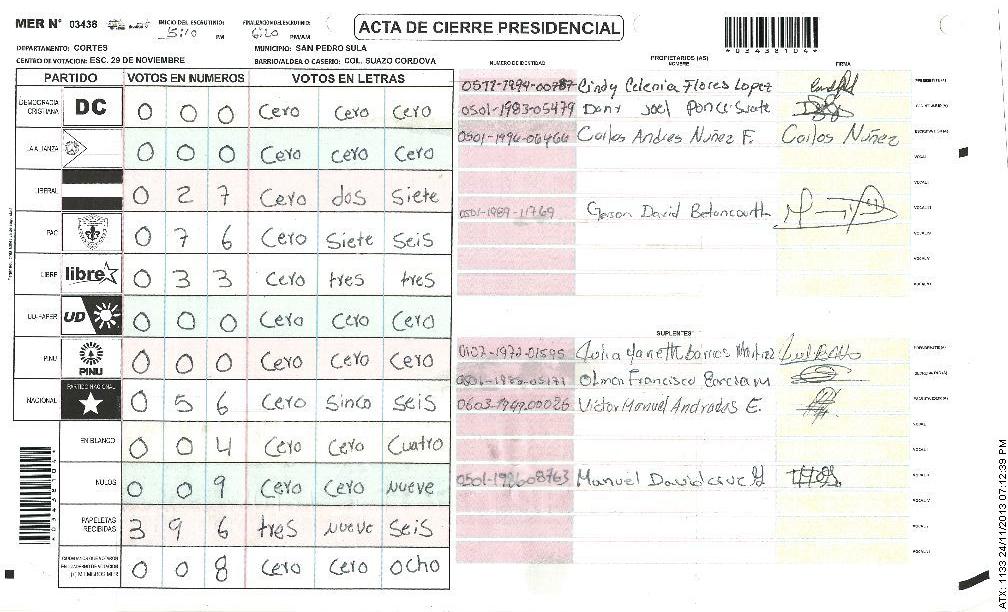 MER N° 03438 INICIO DEL ESCRUTINIO: 5:10 PM FINALIZACIÓN DEL ESCRUTINIO: 6:20 PM/AM
ACTA DE CIERRE PRESIDENCIAL
*03438104*
DEPARTAMENTO: CORTES MUNICIPIO: SAN PEDRO SULA
CENTRO DE VOTACION: ESC. 29 DE NOVIEMBRE BARRIO/ALDEA O CASERIO: COL. SUAZO CORDOVA
PARTIDO VOTOS EN NUMEROS VOTOS EN LETRAS
DEMOCRACIA CRISTIANA DC 0 0 0 Cero Cero Cero
LA ALIANZA 0 0 0 Cero cero Cero
LIBERAL 0 2 7 Cero dos Siete
PAC 0 7 6 Cero Siete Seis
LIBRE libre 0 3 3 Cero tres tres
UD-FAPER UD 0 0 0 Cero Cero Cero
PINU PINU 0 0 0 Cero Cero Cero
NACIONAL PARTIDO NACIONAL 0 5 6 Cero Sinco Seis
EN BLANCO 0 0 4 Cero Cero Cuatro
NULOS 0 0 9 Cero Cero nueve
PAPELETAS RECIBIDAS 3 9 6 tres nueve Seis
0 0 8 Cero Cero ocho
NUMERO DE IDENTIDAD PROPIETARIOS (AS) NOMBRE FIRMA
Cindy Celenia Flores Lopez
0501-1983-05479 Dany Joel Ponce
0501-1996-06466 Carlos Andres Nuñez F. Carlos Nuñez
0501-1989-11769 Gerson David Betancourth
SUPLENTES
0107-1972-01595 Julia Yaneth Barrios Martinez
Olman Francisco
0603-1949-00026 Victor Manuel Andrades E.
0501-1986-08763 Manuel David
ATX: 1133 24/11/2013 07:12:39 PM